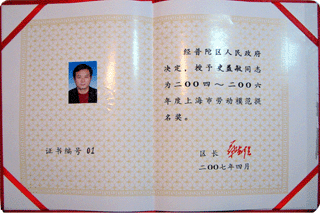 经普陀区人民政府
决定，授予史益敏同志
为二〇〇四－二〇〇六
年度上海市劳动模范提
名奖。
证书编号 01
区长
二〇〇七年四月